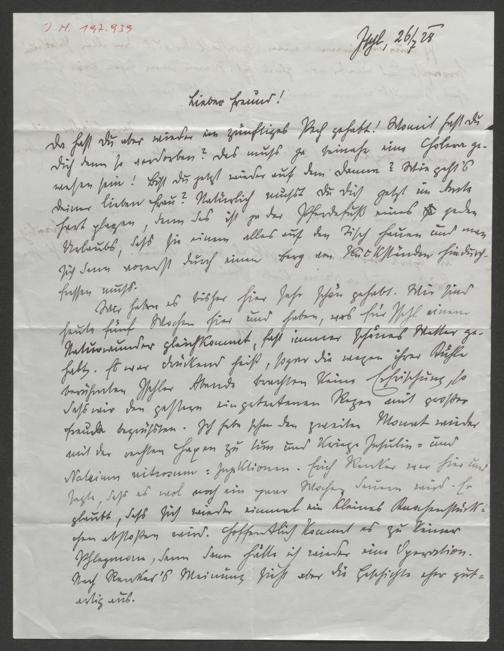 J. N. 197.939
Ischl, 26/7 28
Lieber Freund!
Da hast Du aber wieder ein zünftiges Pech gehabt! Womit hast Du
Dich denn so verdorben? Das muß ja beinahe eine Cholera ge-
wesen sein! Bist Du jetzt wieder auf dem Damm? Wie geht's
Deiner lieben Frau? Natürlich mußt Du Dich jetzt im
plagen, denn das ist ja der Pferdefuß eines jeden
Urlaubs, daß sie einem alles auf den Tisch hauen und man
sich dann vorerst durch einen Berg von Rückständen hindurch-
fressen muß.
Wir haben es bisher hier sehr schön gehabt. Wir sind
heute fünf Wochen hier und haben, was für Ischl einem
Naturwunder gleichkommt, fast immer schönes Wetter ge-
habt. Es war drückend heiß, sogar die wegen ihrer Kühle
berühmten Ischler Abende brachten keine Erfrischung, so
daß wir den gestern eingetretenen Regen mit großer
Freude begrüßten. Ich habe schon den zweiten Monat wieder
mit der rechten zu tun und kriege Insulin- und
Natrium nitrosum-Injektionen. Auch Renker war hier und
sagte, daß es wol noch ein paar Wochen dauern wird. Er
glaubt, daß sich wieder einmal ein kleines Knochenstück-
chen abstoßen wird. Hoffentlich kommt es zu keiner
Phlegmone, denn dann hätte ich wieder eine Operation.
Nach Renker's Meinung sieht aber die Geschichte eher gut-
artig aus.